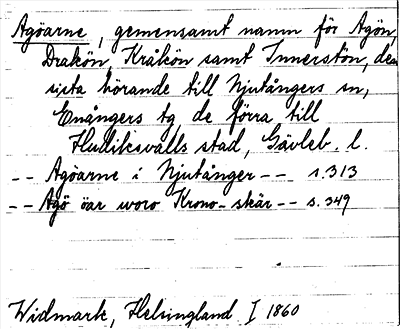 Agöarne, gemensamt namn för Agön,
Drakön, Kråkön samt Innerstön, den
sista hörande till Njutångers sn,
Enångers tg de förra till
Hudiksvalls stad, Gävleb. l.
-- Agöarne i Njutånger -- s. 313
-- Agö öar woro Krono-skär -- s. 349
Widmark, Helsingland I 1860